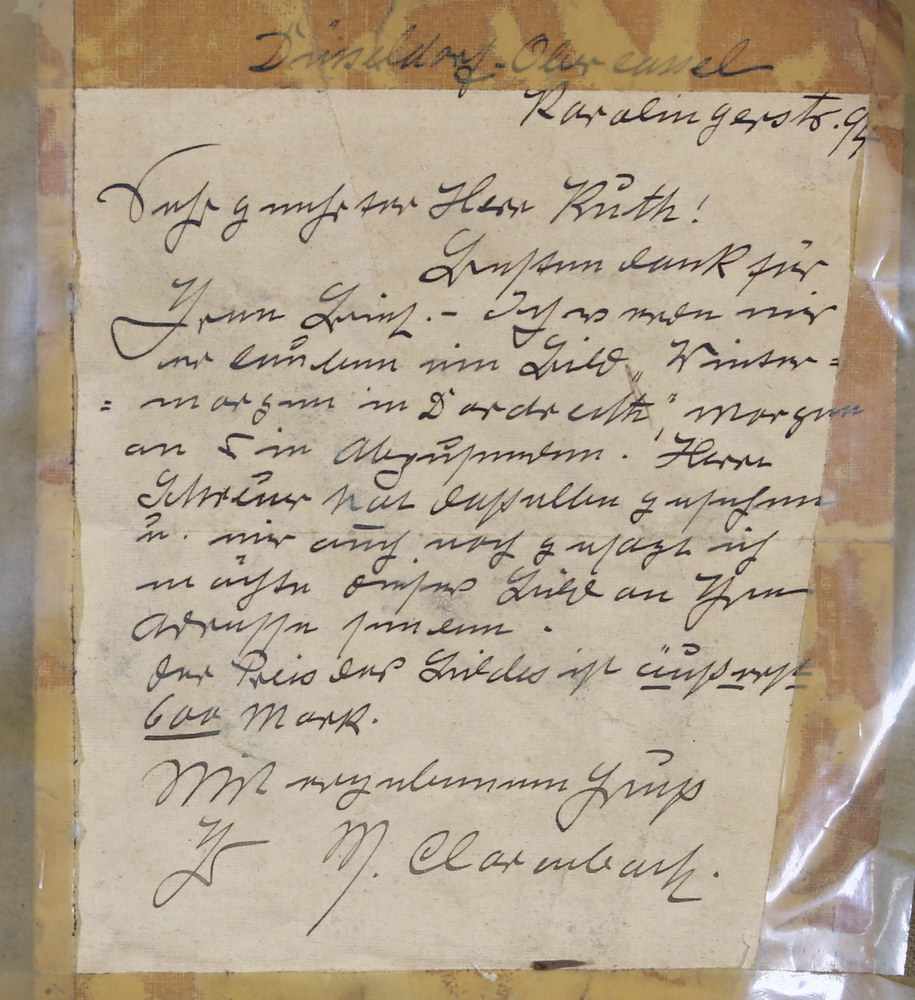 Düsseldorf-Obercassel
Karolingerstr. 94
Sehr geehrter Herr Ruth!
Besten Dank für
Ihren Brief. – Ich werde mir
erlauben ein Bild „Winter=
=morgen in Dordrecht“, morgen
an S in abzusenden. Herr
Schreuer hat dasselbe gesehen
u. mir auch noch gesagt ich
möchte dieses Bild an Ihre
Adresse senden.
Der Preis des Bildes ist äußerst
600 Mark.
Mit ergebenem Gruß
Ihr M. Clarenbach.